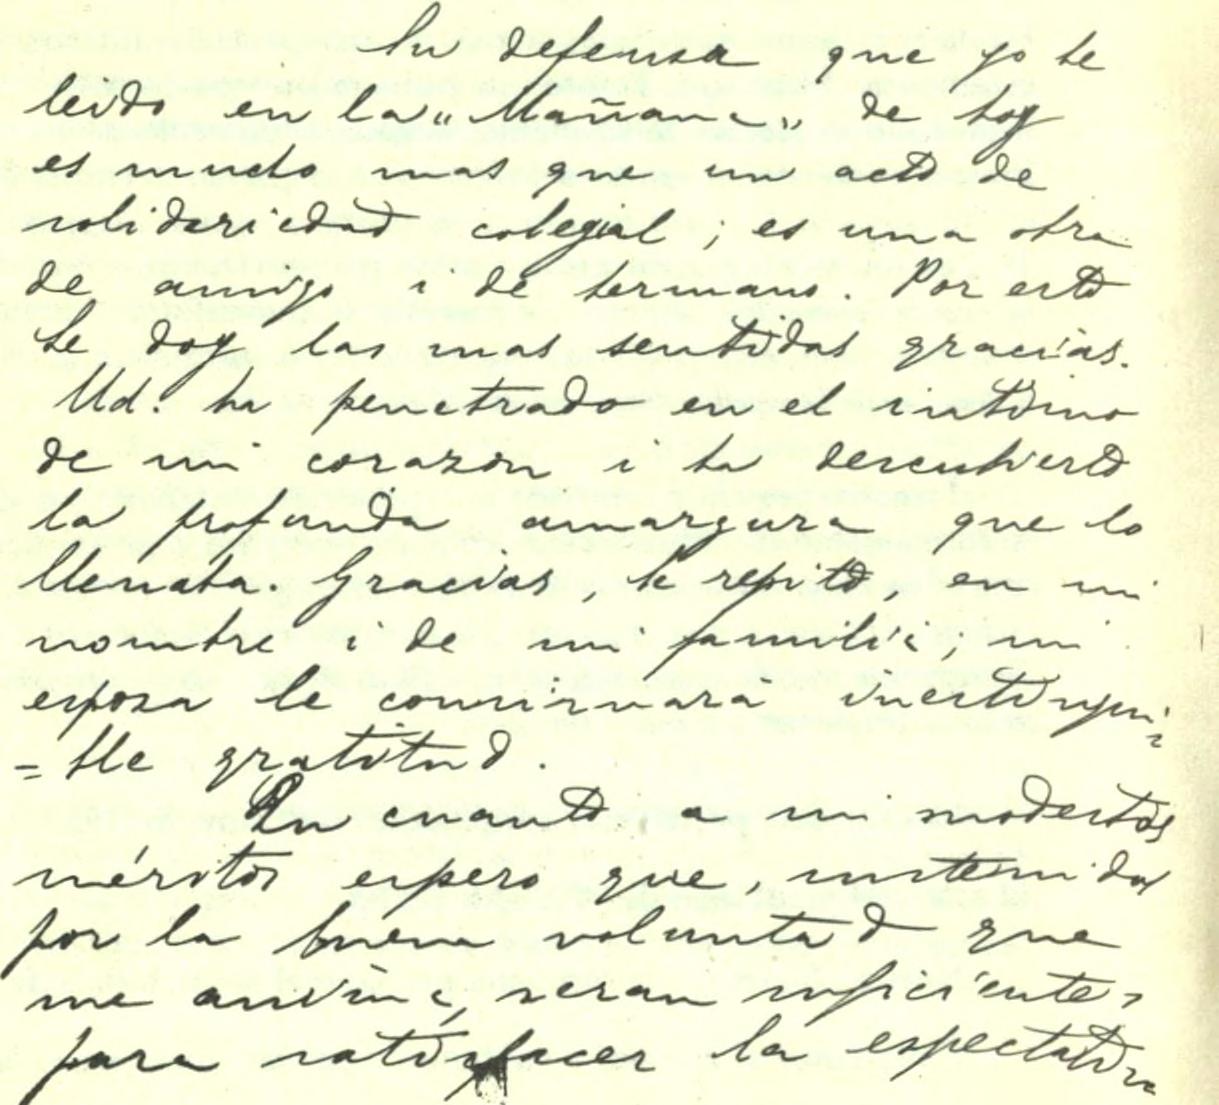 Su defensa que yo he
leido en la „Mañana„ de hoy
es mucho mas que un acto de
solidariedad colegial; es una obra
de amigo i de hermano. Por esto
le doy las mas sentidas gracias.
Ud. ha penetrado en el intimo
de mi corazón i ha descubierto
la profunda amargura que lo
llenaba. Gracias, le repito, en mi
nombre i de mi familia; mi
esposa le conservara inestingui=
=ble gratitud.
En cuanto a mi modestos
méritos espero que, sostenidos
por la buena voluntad que
me anima, seran suficientes
para satisfacer la espectativa